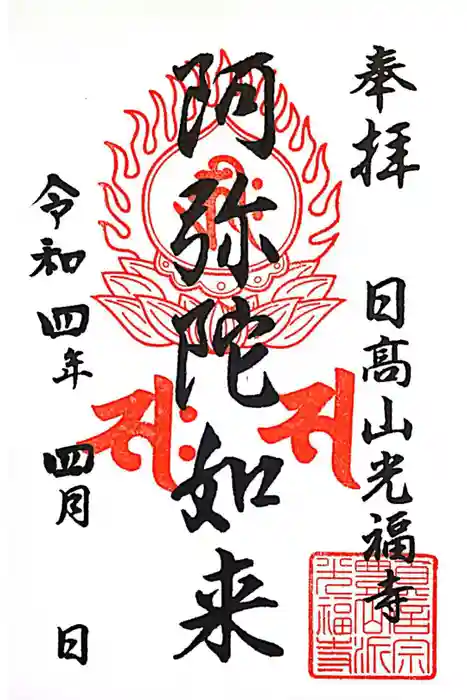 奉拝
日高山光福寺
真言宗
豊山派
光福寺
阿弥陀如来
令和四年 四月 日